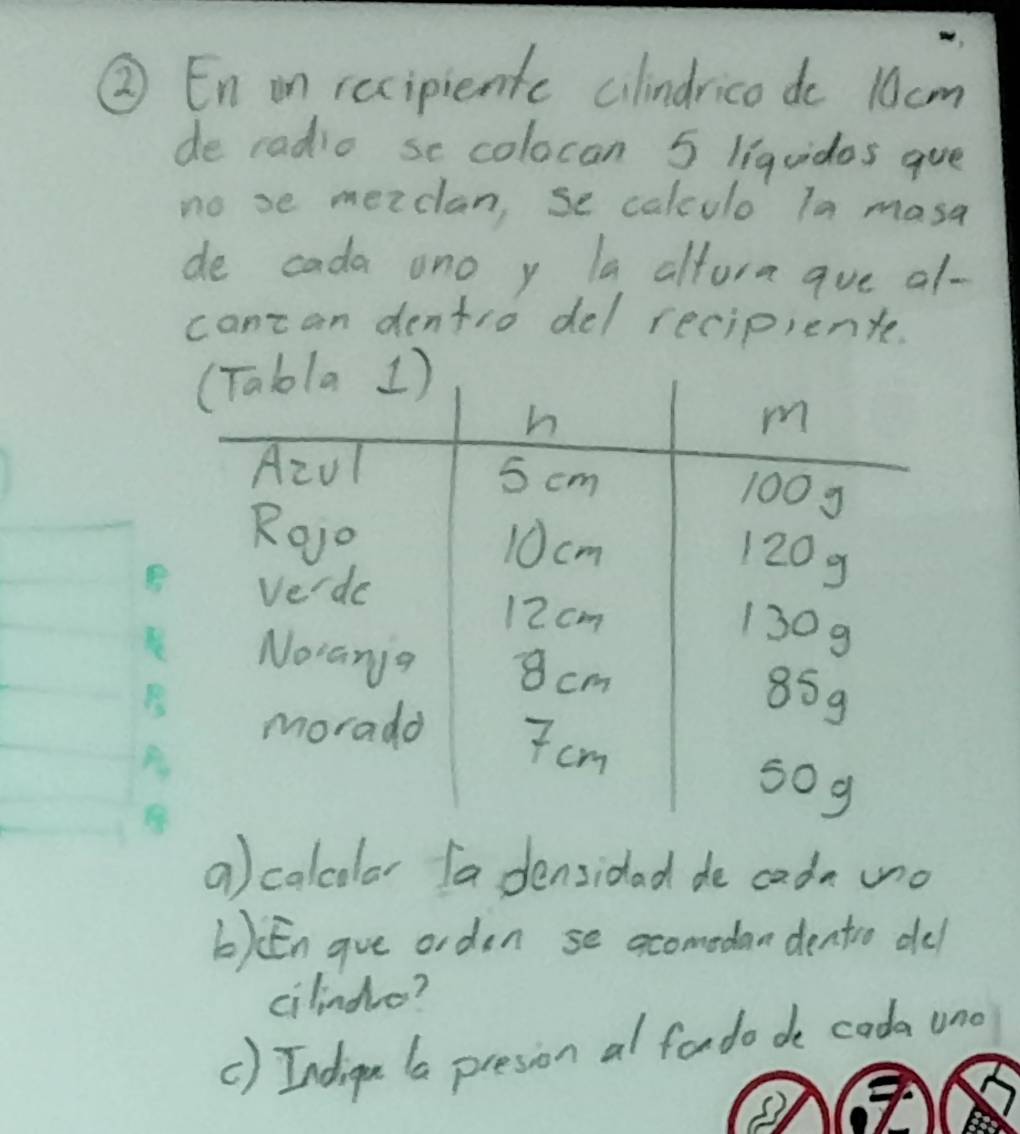 ② En un recipiente cilindrico de 10cm
de radio se colocan 5 líquidos que
no se mezclan, se calculo la masa
de cada uno y la altura que al-
canzan dentro del recipiente.
(Tabla 1)
h m
Azul 5 cm 100 g
Rojo 10 cm 120 g
Verde 12 cm 130 g
Naranja 8 cm 85 g
morado 7 cm 50 g
a) calcular la densidad de cada uno
b) ¿En que orden se acomodan dentro del
cilindro?
c) Indique la presion al fondo de cada uno